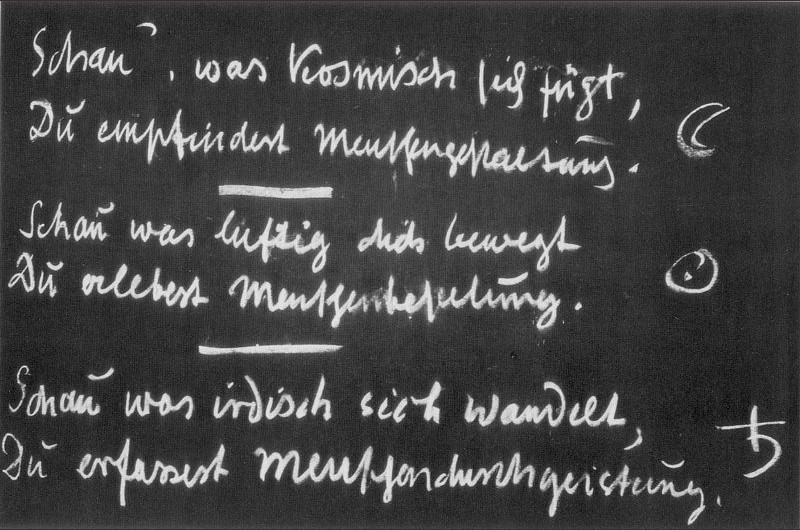 Schau, was kosmisch sich fügt,
Du empfindest Menschengestaltung.
Schau was luftig dich bewegt
Du erlebest Menschenbeseelung.
Schau was irdisch sich wandelt,
Du erfassest Menschendurchgeistung.